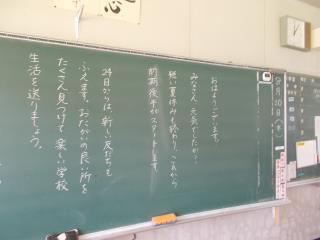 おはようございます。
みなさん、元気でしたか?
短い夏休みも終わり、これから
前期後半がスタートします。
24日からは新しい友だちも
ふえます。おたがいの良い所を
たくさん見つけて 楽しい学校
生活を送りましょう。